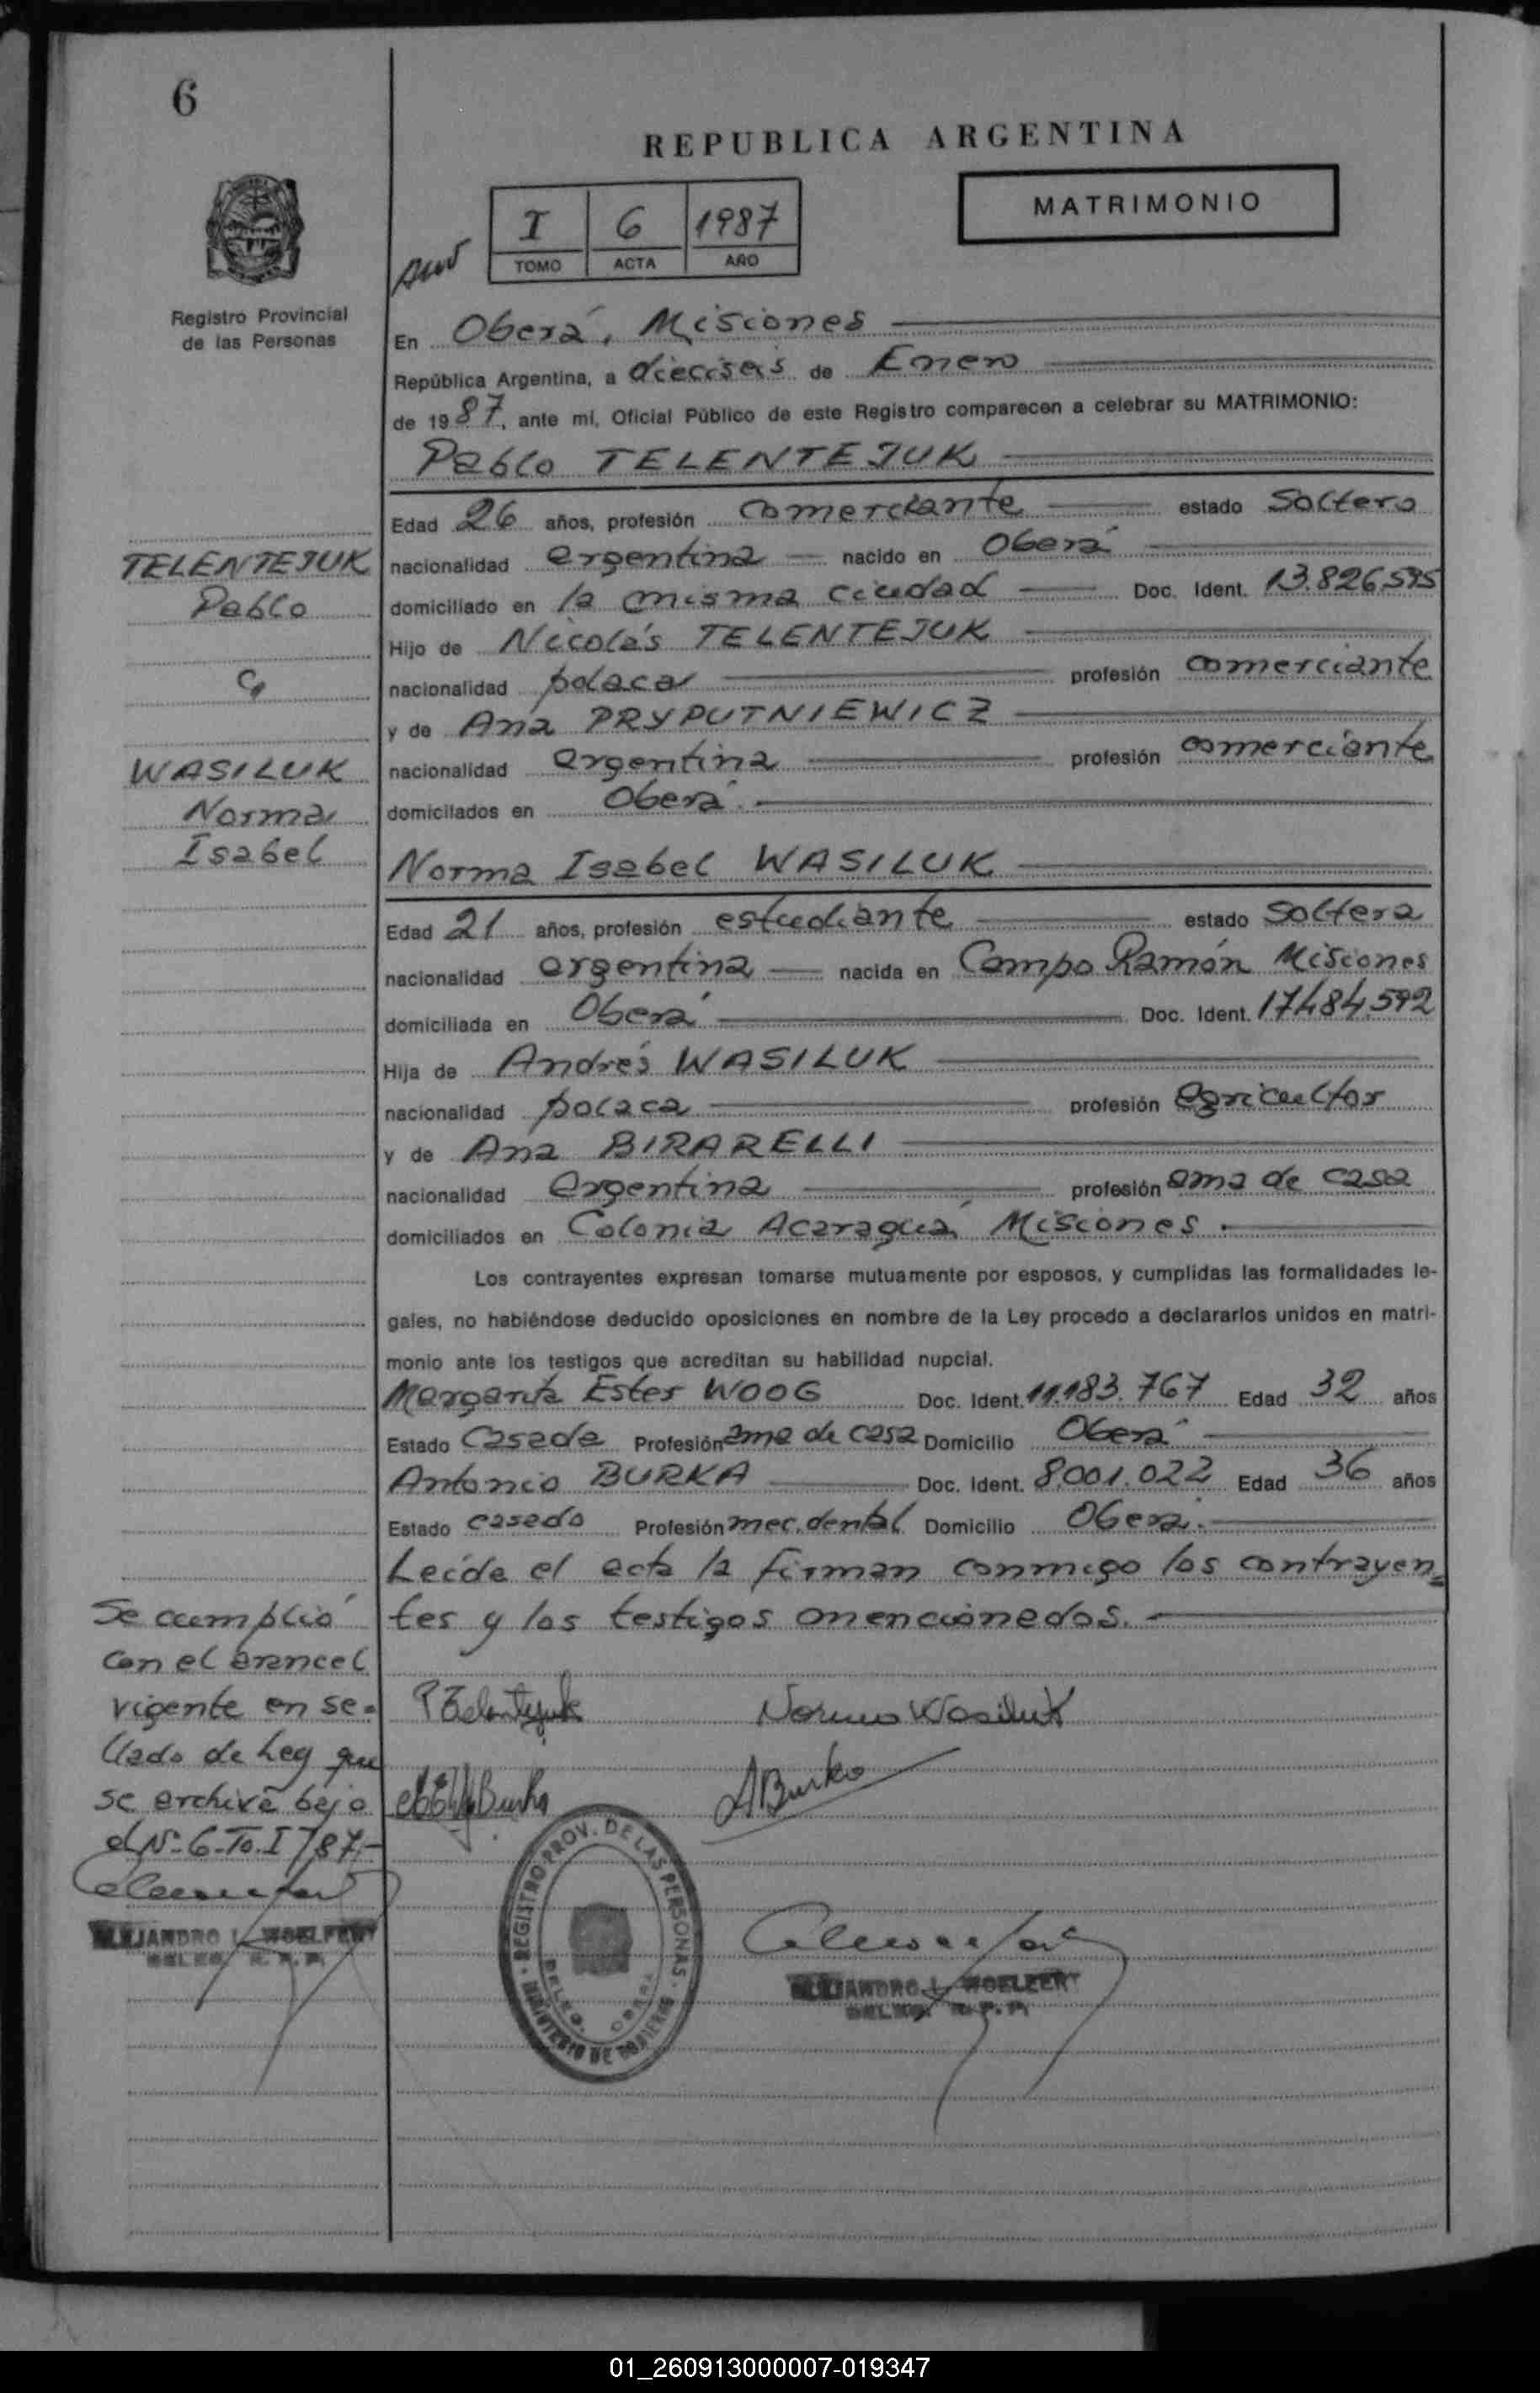 6
REPUBLICA ARGENTINA
MATRIMONIO
I 6 1987
TOMO ACTA AÑO
Registro Provincial
de las Personas
En Oberá, Misiones
República Argentina, a dieciseis de Enero
de 1987, ante mi, Oficial Público de este Registro comparecen a celebrar su MATRIMONIO:
Pablo TELENTEJUK
Edad 26 años, profesión comerciante estado Soltero
nacionalidad argentina nacido en Oberá
domiciliado en la misma ciudad Doc. Ident. 13.826.595
Hijo de Nicolás TELENTEJUK
nacionalidad polaca profesión comerciante
y de Ana PRYPUTNIEWICZ
nacionalidad argentina profesión comerciante
domicilados en Oberá.
TELENTEJUK
Pablo
WASILUK
Norma
Isabel
Norma Isabel WASILUK
Edad 21 años, profesión estudiante estado Soltera
nacionalidad argentina nacida en Campo Ramón Misiones
domiciliada en Oberá Doc. Ident. 17.484.592
Hija de Andrés WASILUK
nacionalidad polaca profesión agricultor
y de Ana BIRARELLI
nacionalidad Argentina profesión ama de casa
domiciliados en Colonia Acaraguá, Misiones.
Los contrayentes expresan tomarse mutuamente por esposos, y cumplidas las formalidades le-
gales, no habiéndose deducido oposiciones en nombre de la Ley procedo a declararlos unidos en matri-
monio ante los testigos que acreditan su habilidad nupcial.
Margarita Ester WOOG Doc. Ident. 11.183.767 Edad 32 años
Estado Casada Profesión ama de casa Domicilio Oberá
Antonio BURKA Doc. Ident. 8.001.022 Edad 36 años
Estado casado Profesión mec. dental Domicilio Oberá.
Leída el acta la firman conmigo los contrayen=
tes y los testigos mencionados.
Se cumplió
con el arancel
vigente en se=
llado de Ley que
se archiva bajo
el Nº 6-To.I/87.-
P Telentejuk Norma Wasiluk
ABurka
ALEJANDRO L. WOELFERT
DELEG. R.P.P.
REGISTRO PROV. DE LAS PERSONAS
MINISTERIO DE GOBIERNO
DELEG. OBERA
ALEJANDRO L. WOELFERT
DELEG. R.P.P.
01_260913000007-019347